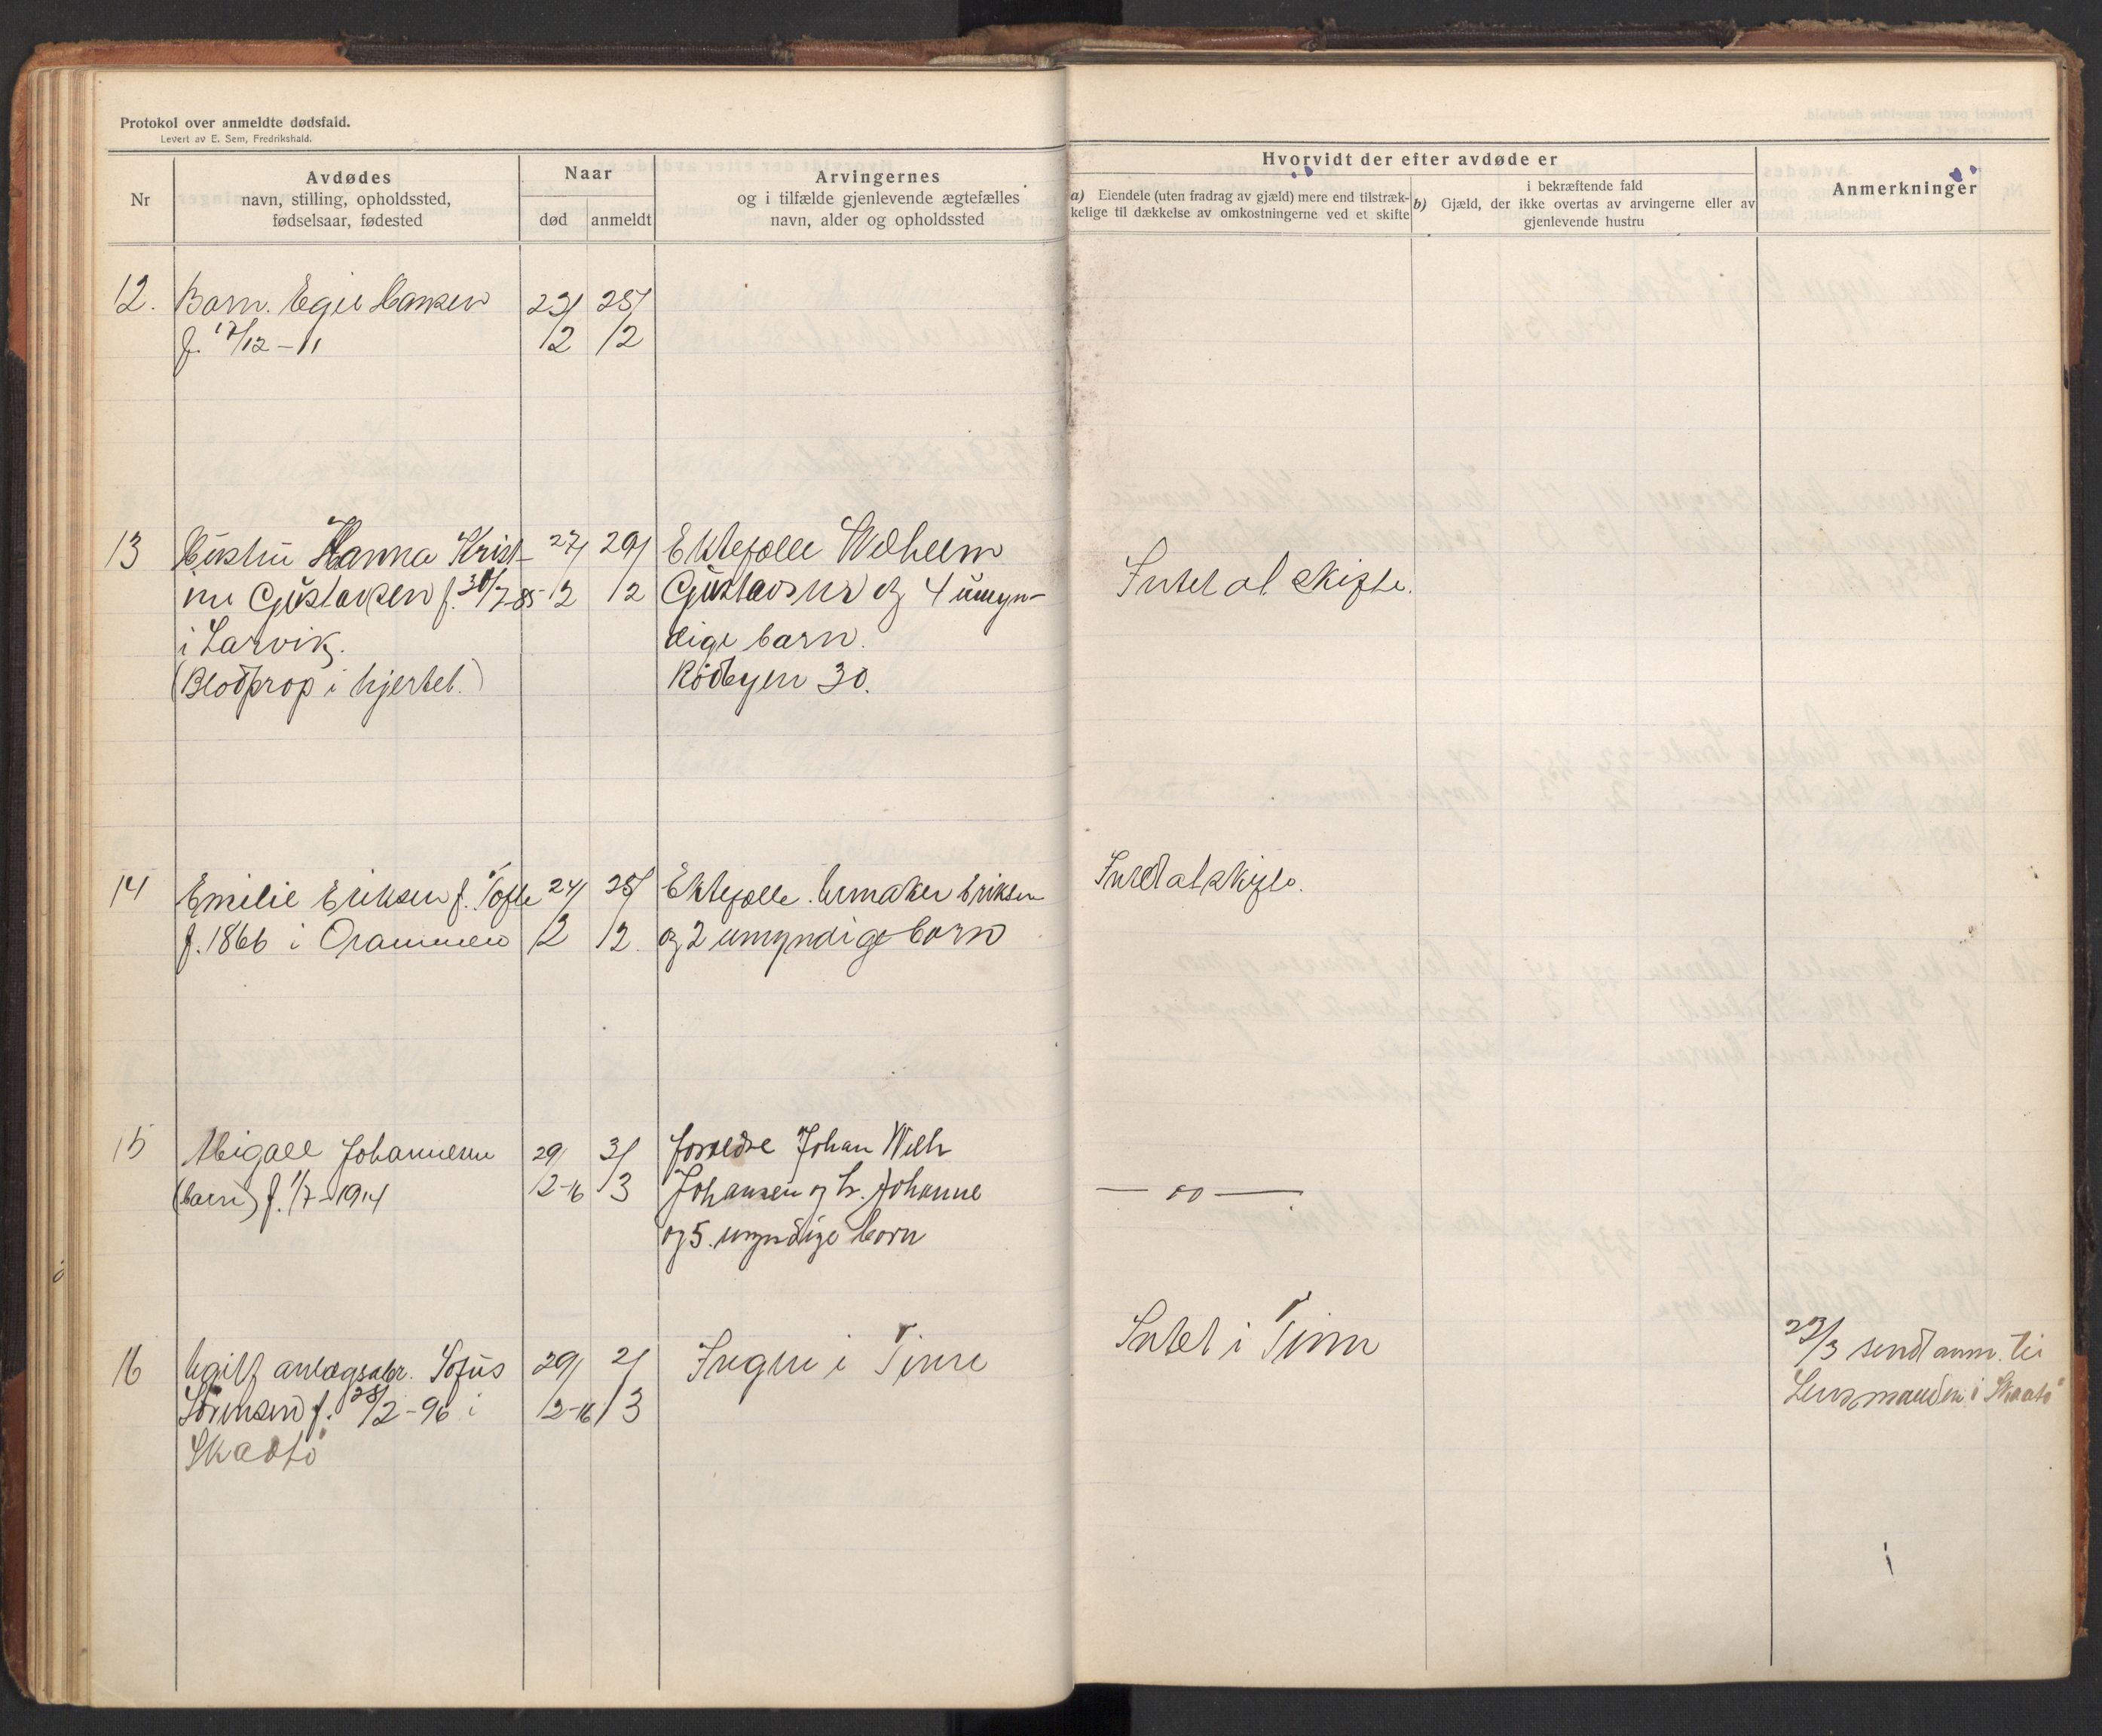 Protokol over anmeldte dødsfald.
Levert av E. Sem, Fredrikshald.
Nr
Avdødes
navn, stilling, opholdssted,
fødselsaar, fødested
Naar
død
anmeldt
Arvingernes
og i tilfælde gjenlevende ægtefælles
navn, alder og opholdssted
Hvorvidt der efter avdøde er
a) Eiendele (uten fradrag av gjæld) mere end tilstræk-
kelige til dækkelse av omkostningerne ved et skifte
i bekræftende fald
b) Gjæld, der ikke overtas av arvingerne eller av
gjenlevende hustru
Anmerkninger
12. Barn. Egil Hansen 23/ 25/
f. 17/12-11 /2 /2
13 Hustru Hanna Krist- 27/ 29/ Ektefælle Wilhelm
ine Gustavsen f. 30/7-85 /2 /2 Gustavsen og 4 umyn-
i Larvik. dige barn.
(Blodprop i hjertet.) Rödbyen 30.
Intet at skifte.
14 Emilie Eriksen f. Tofte 24/ 25/ Ektefælle. Urmaker Eriksen
f. 1866 i Drammen /2 /2 og 2 umyndige barn
Intet at skifte.
15 Abigael Johannesen 29/ 3/ foreldre Johan Wilh
(barn) f. 1/7-1914 /2-16 /3 Johansen og h. Johanne
og 5 umyndige barn
— oo —
16 Ugift anlægsarb. Sofus 29/ 2/ Ingen i Tinn
Sörensen f. 28/2-96 i /2-16 /3
Skaatö
Intet i Tinn
23/3 sendt anm. til
Lensmanden i Skaatö